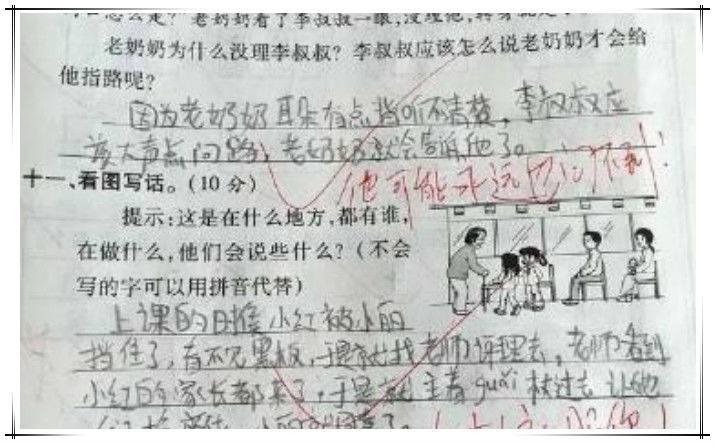 老奶奶为什么没理李叔叔？李叔叔应该怎么说老奶奶才会给
他指路呢？
因为老奶奶耳朵有点背听不清楚，李叔叔应
该大声点问路，老奶奶就会告诉他了。
他可能永远也问不到！
十一、看图写话。(10分)
提示:这是在什么地方,都有谁,
在做什么,他们会说些什么?(不会
写的字可以用拼音代替)
上课的时候小红被小丽
挡住了，看不见黑板，于是就找老师评理去，老师看到
小红的家长都来了，于是就主着guǎi杖过去让他